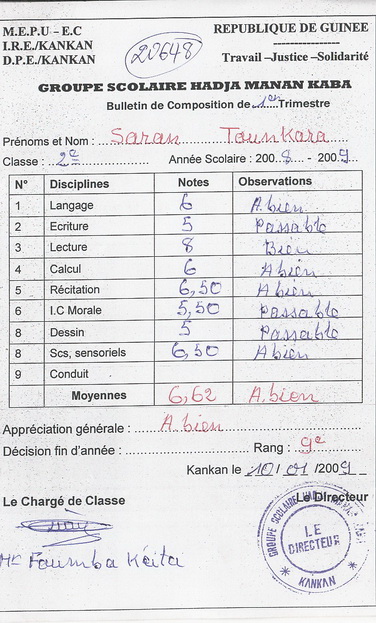 M.E.P.U - E.C
REPUBLIQUE DE GUINEE
I.R.E./KANKAN
D.P.E./KANKAN
20648
Travail –Justice –Solidarité
GROUPE SCOLAIRE HADJA MANAN KABA
Bulletin de Composition de 1er Trimestre
Prénoms et Nom : Saran Tounkara
Classe : 2e Année Scolaire : 200 8 - 200 9
N° Disciplines Notes Observations
1 Langage 6 A.bien
2 Ecriture 5 Passable
3 Lecture 8 Bien
4 Calcul 6 A bien
5 Récitation 6,50 A bien
6 I.C Morale 5,50 Passable
8 Dessin 5 Passable
8 Scs, sensoriels 6,50 A bien
9 Conduit
Moyennes 6,62 A.bien
Appréciation générale : A.bien
Décision fin d'année : Rang : 9e
Kankan le 10/01/2009
Le Chargé de Classe
Le Directeur
GROUPE SCOLAIRE
LE
DIRECTEUR
KANKAN
Foumba Kéita